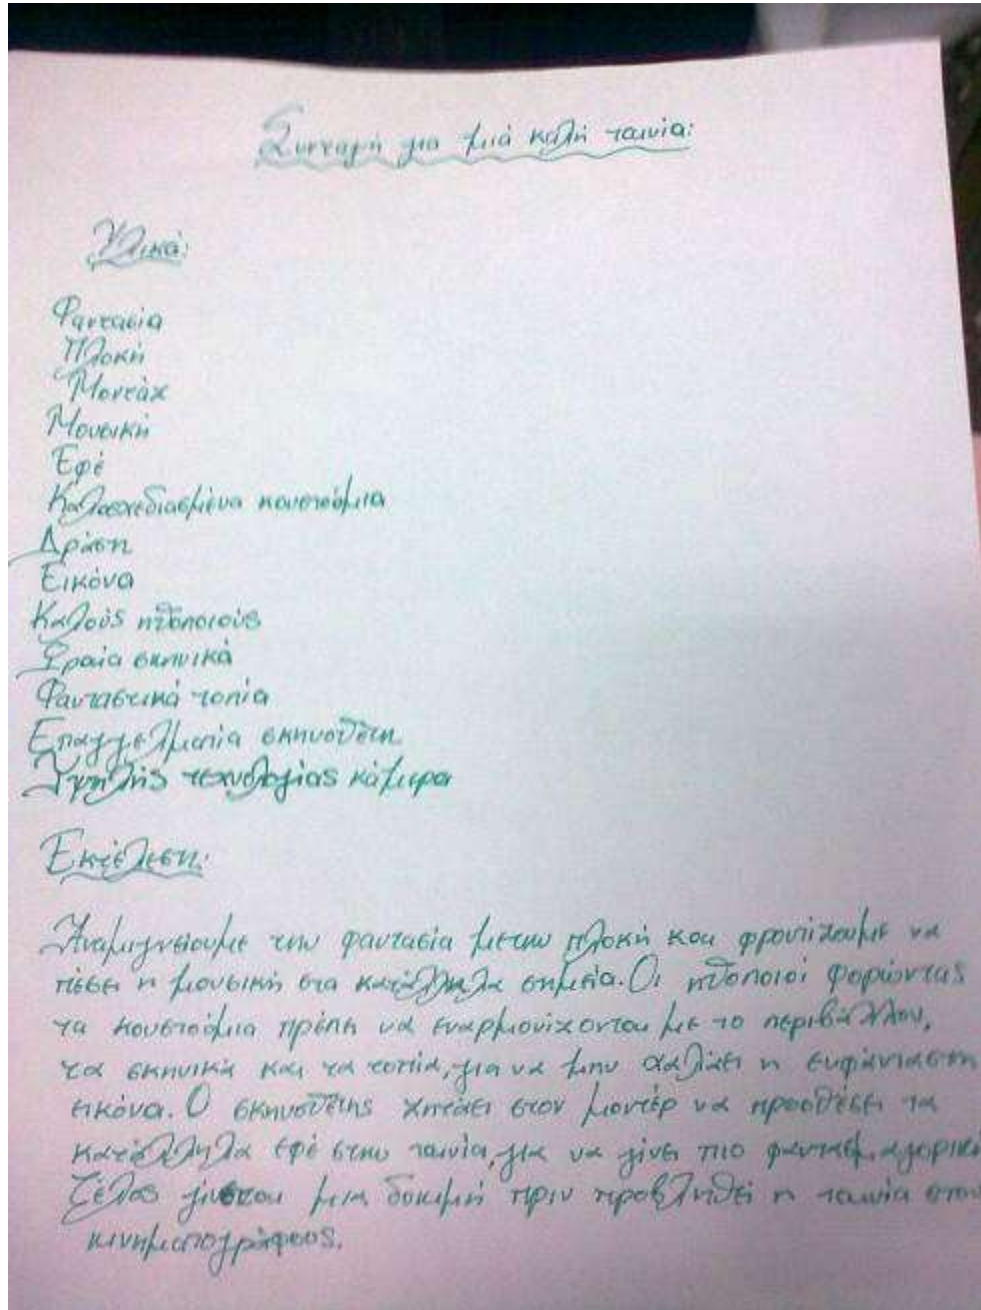 Συνταγή για μιά καλή ταινία:
Υλικά:
Φαντασία
Πλοκή
Μοντάζ
Μουσική
Εφέ
Καλοσχεδιασμένα κουστούμια
Δράση
Εικόνα
Καλούς ηθοποιούς
Ωραία σκηνικά
Φανταστικά τοπία
Επαγγελματία σκηνοθέτη
Υψηλής τεχνολογίας κάμερα
Εκτέλεση:
Αναμιγνείουμε την φαντασία με την πλοκή και φροντίζουμε να
πέσει η μουσική στα κατάλληλα σημεία. Οι ηθοποιοί φορώντας
τα κουστούμια πρέπει να εναρμονίζονται με το περιβάλλον,
τα σκηνικά και τα τοπία, για να μην χαλάσει η ευφάνταστη
εικόνα. Ο σκηνοθέτης ζητάει στον μοντέρ να προσθέσει τα
κατάλληλα εφέ στην ταινία, για να γίνει πιο φαντασμαγορική
Τέλος γίνεται μια δοκιμή πριν προβληθεί η ταινία στους
κινηματογράφους.